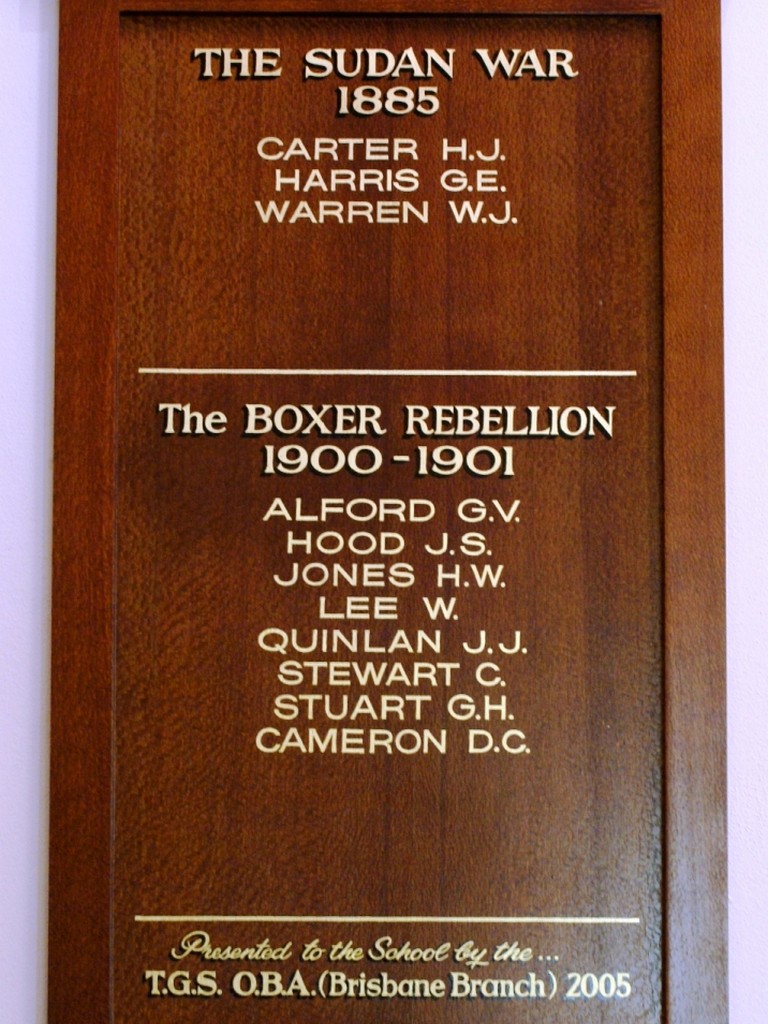 THE SUDAN WAR
1885
CARTER H.J.
HARRIS G.E.
WARREN W.J.
The BOXER REBELLION
1900-1901
ALFORD G.V.
HOOD J.S.
JONES H.W.
LEE W.
QUINLAN J.J.
STEWART C.
STUART G.H.
CAMERON D.C.
Presented to the School by the ...
T.G.S. O.B.A. (Brisbane Branch) 2005